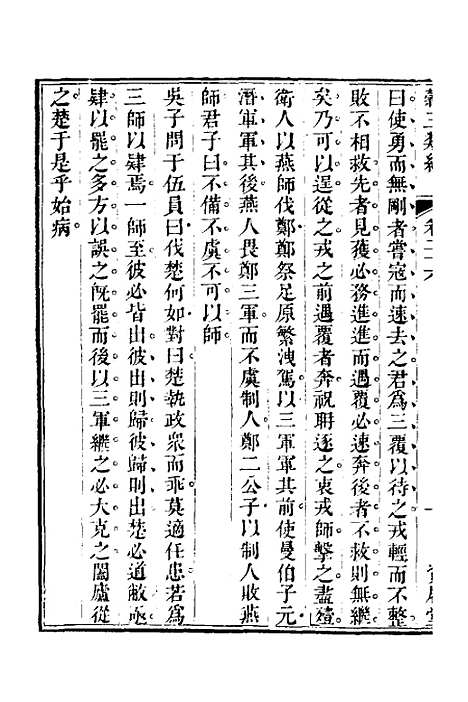 卷二十六
曰使勇而無剛者嘗寇而速去之君爲三覆以待之戎輕而不整
敗不相救先者見獲必務進進而遇覆必速奔後者不救則無繼
矣乃可以逞從之戎之前遇覆者奔祝聃逐之衷戎師擊之盡殪
衛人以燕師伐鄭鄭祭足原繁洩駕以三軍軍其前使曼伯子元
潛軍軍其後燕人畏鄭三軍而不虞制人鄭二公子以制人敗燕
師君子曰不備不虞不可以師
吳子問于伍員曰伐楚何如對曰楚執政衆而乖莫適任患若爲
三師以肄焉一師至彼必皆出彼出則歸彼歸則出楚必道敝亟
肄以罷之多方以誤之旣罷而後以三軍繼之必大克之闔廬從
之楚于是乎始病